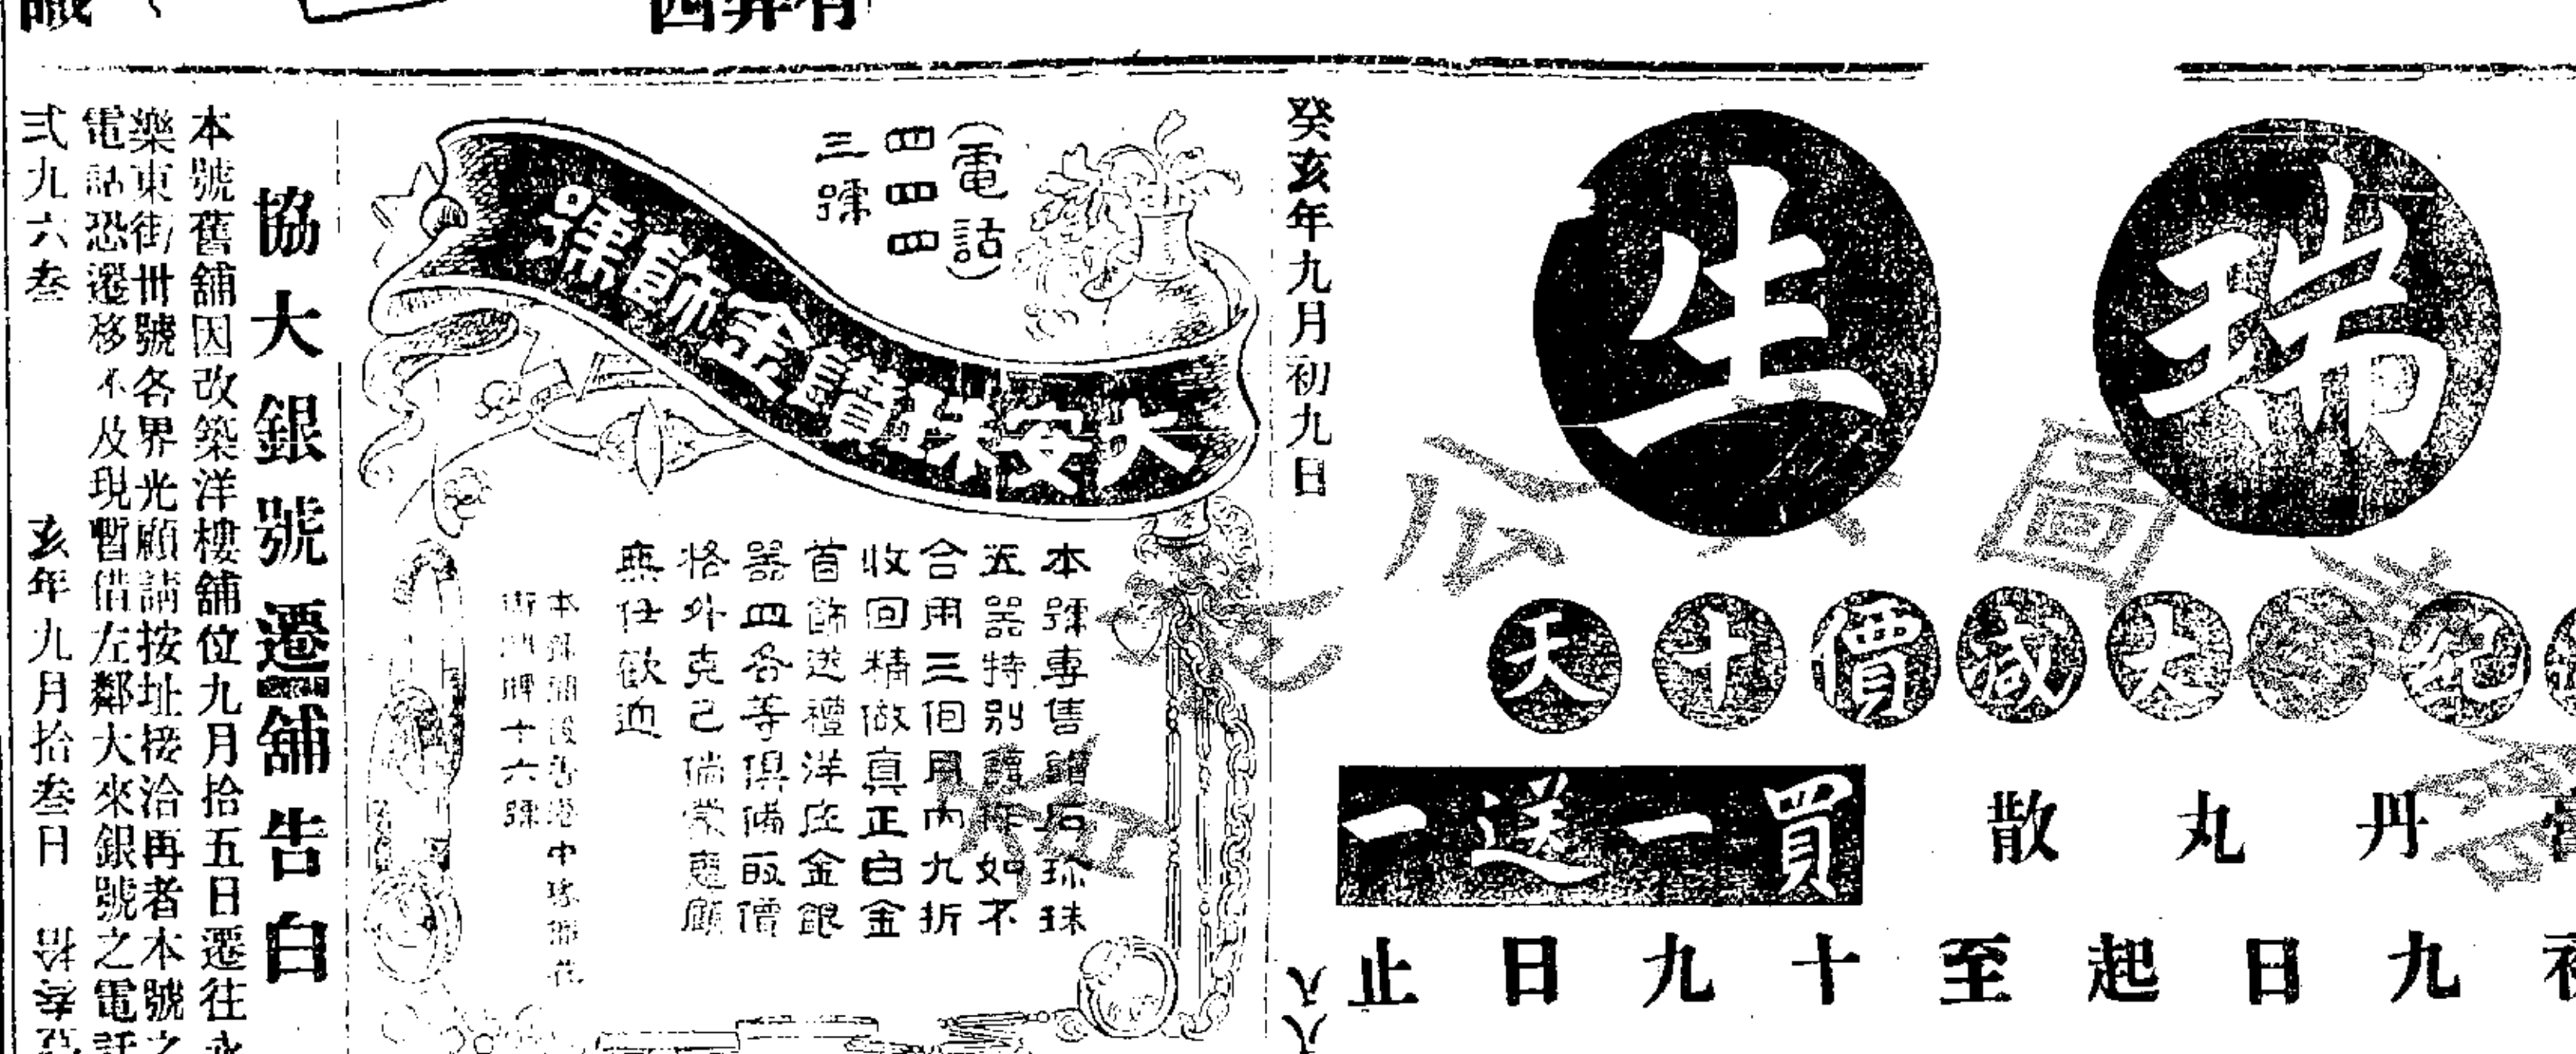 瑞生
紀
大減價十天
丹丸散
買一送一
九日起至十九日止
癸亥年九月初九日
八八
(電話)
四四四
三號
大安珠寶金飾號
本號專售鑽石珍珠
玉器特別 如不
合用三個月內九折
收回精做真正白金
首飾送禮洋庄金銀
器皿各等俱備取價
格外克己倘蒙惠顧
無任歡迎
本號舖設香港中環
十六號
協大銀號遷舖告白
本號舊舖因改築洋樓舖位九月拾五日遷往永
樂東街卅號各界光顧請按址接洽再者本號之
電話恐遷移不及現暫借左鄰大來銀號之電話
弍九六叁
亥年九月拾叁日